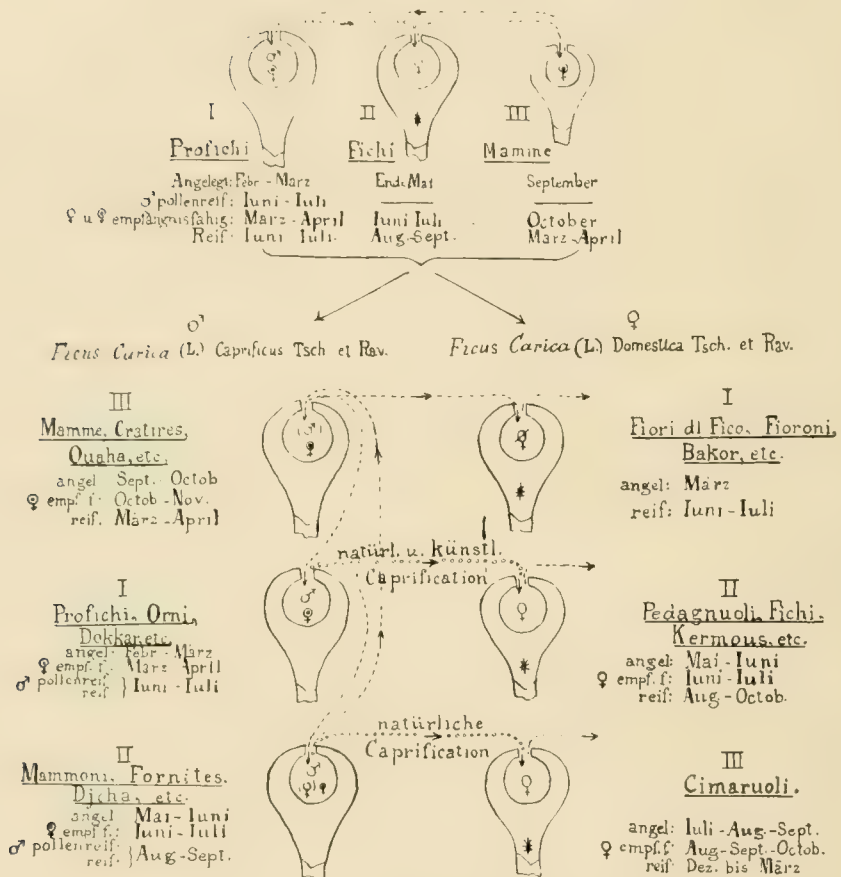 I II III
Profichi Fichi Mamme
Angelegt: Febr - März Ende Mai September
♂ pollenreif: Iuni - Iuli
♀ u ♀ empfängnisfähig: März - April Iuni Iuli October
Reif: Iuni Iuli. Aug-Sept. März-April
♂ ♀
Ficus Carica (L.) Caprificus Tsch et Rav. Ficus Carica (L.) Domestica Tsch. et Rav.
III
Mamme, Cratires,
Ouaha, etc.
angel Sept. Octob
♀ empf. f: Octob - Nov.
reif. März - April
I
Fiori di Fico, Fioroni,
Bakor, etc.
angel: März
reif: Iuni - Iuli
natürl. u. künstl.
Caprification
I
Profichi, Orni,
Dokkar, etc
angel: Febr - März
♀ empf. f. März April
♂ pollenreif
reif } Iuni - Iuli
II
Pedagnuoli, Fichi.
Kermous, etc.
angel: Mai - Iuni
♀ empf. f: Iuni - Iuli
reif: Aug - Octob.
natürliche
Caprification
II
Mammoni, Fornites.
Djcha, etc.
angel Mai - Iuni
♀ empf f.: Iuni - Iuli
♂ pollenreif.
reif. } Aug - Sept.
III
Cimaruoli.
angel: Iuli - Aug. - Sept.
♀ empf. f: Aug - Sept - Octob.
reif: Dez. bis März